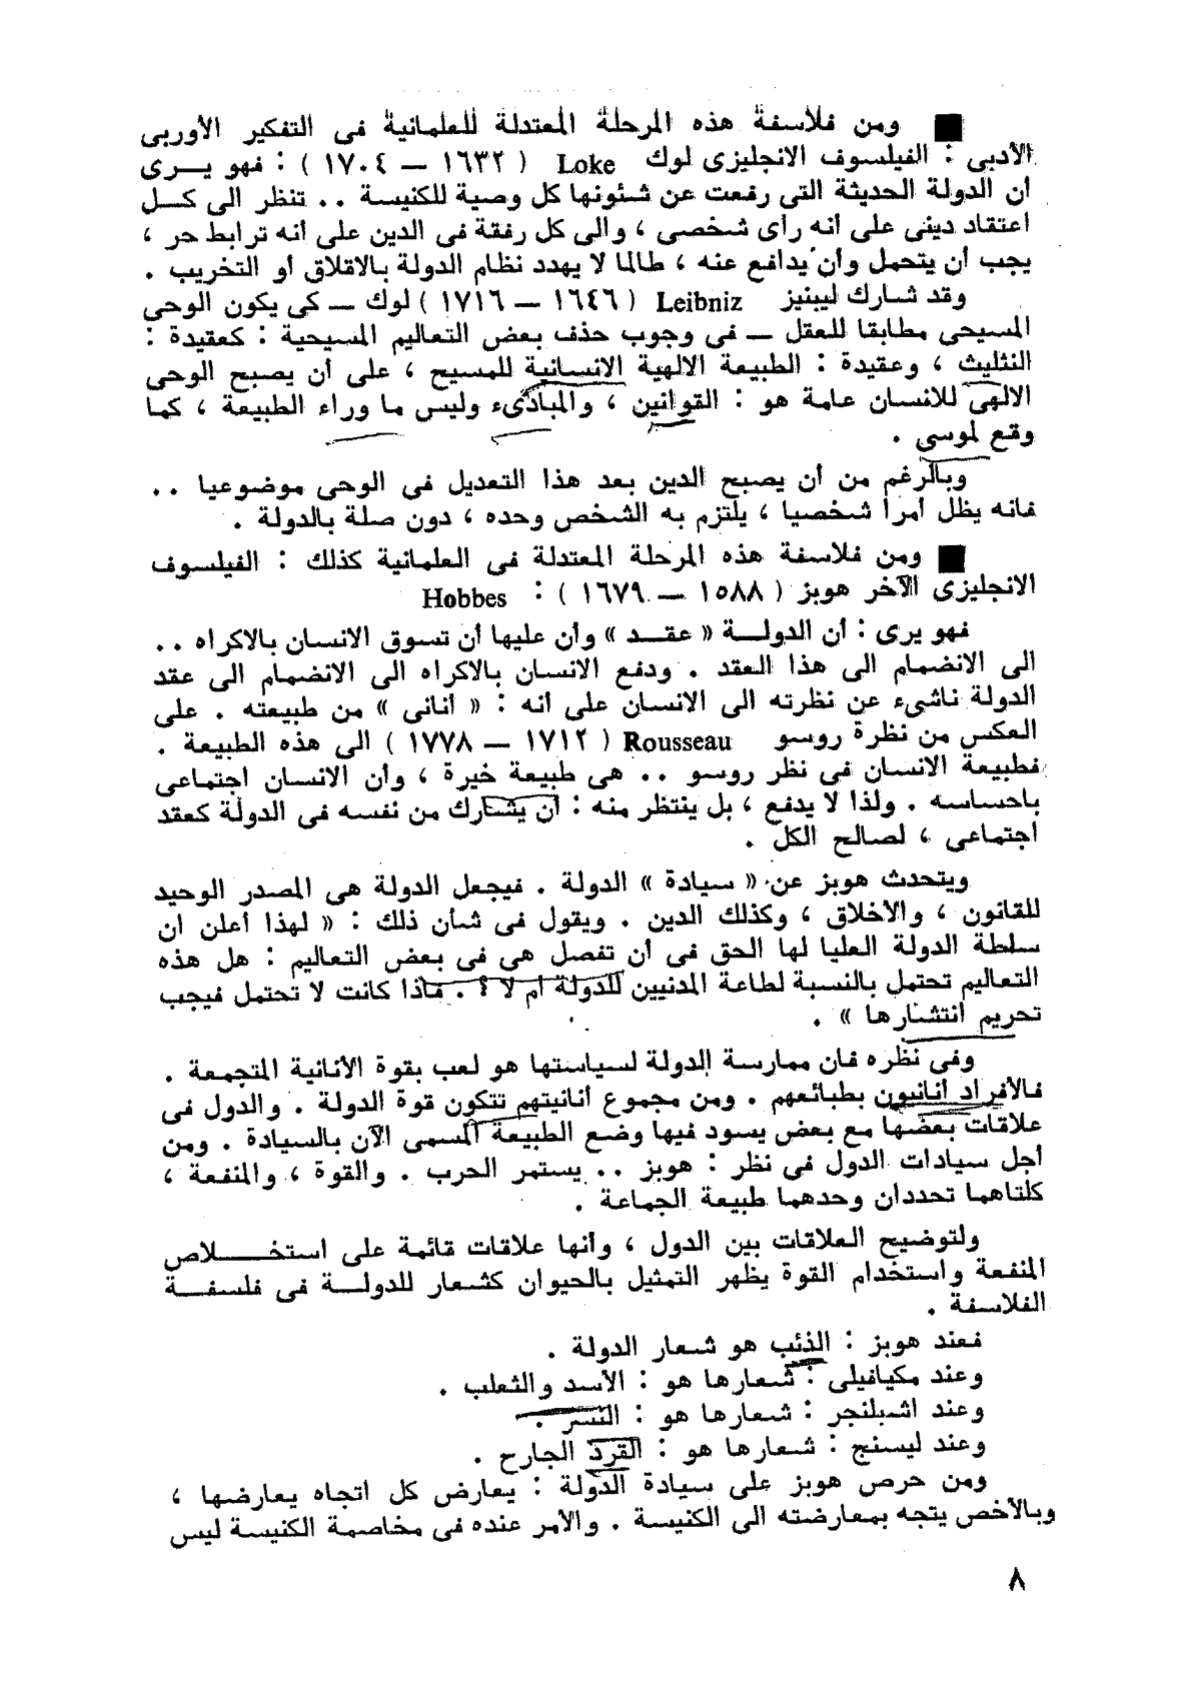 ■ ومن فلاسفة هذه المرحلة المعتدلة للعلمانية فى التفكير الأوربى
الأدبى : الفيلسوف الانجليزى لوك Loke ( ١٦٣٢ — ١٧٠٤ ) : فهو يــرى
أن الدولة الحديثة التى رفعت عن شئونها كل وصية للكنيسة .. تنظر الى كــل
اعتقاد دينى على أنه رأى شخصى ، والى كل رفقة فى الدين على أنه ترابط حر ،
يجب أن يتحمل وأن يدافع عنه ، طالما لا يهدد نظام الدولة بالاقلاق أو التخريب .
وقد شارك ليبنيز Leibniz ( ١٦٤٦ — ١٧١٦ ) لوك — كى يكون الوحى
المسيحى مطابقا للعقل — فى وجوب حذف بعض التعاليم المسيحية : كعقيدة :
التثليث ، وعقيدة : الطبيعة الالهية الانسانية للمسيح ، على أن يصبح الوحى
الالهى للانسان عامة هو : القوانين ، والمبادىء وليس ما وراء الطبيعة ، كما
وقع لموسى .
وبالرغم من أن يصبح الدين بعد هذا التعديل فى الوحى موضوعيا ..
فانه يظل أمرا شخصيا ، يلتزم به الشخص وحده ، دون صلة بالدولة .
■ ومن فلاسفة هذه المرحلة المعتدلة فى العلمانية كذلك : الفيلسوف
الانجليزى الآخر هوبز ( ١٥٨٨ — ١٦٧٩ ) : Hobbes
فهو يرى : أن الدولــة « عقــد » وأن عليها أن تسوق الانسان بالاكراه ..
الى الانضمام الى هذا العقد . ودفع الانسان بالاكراه الى الانضمام الى عقد
الدولة ناشىء عن نظرته الى الانسان على أنه : « أنانى » من طبيعته . على
العكس من نظرة روسو Rousseau ( ١٧١٢ — ١٧٧٨ ) الى هذه الطبيعة .
فطبيعة الانسان فى نظر روسو .. هى طبيعة خيرة ، وأن الانسان اجتماعى
باحساسه . ولذا لا يدفع ، بل ينتظر منه : أن يشارك من نفسه فى الدولة كعقد
اجتماعى ، لصالح الكل .
ويتحدث هوبز عن « سيادة » الدولة . فيجعل الدولة هى المصدر الوحيد
للقانون ، والأخلاق ، وكذلك الدين . ويقول فى شأن ذلك : « لهذا أعلن أن
سلطة الدولة العليا لها الحق فى أن تفصل هى فى بعض التعاليم : هل هذه
التعاليم تحتمل بالنسبة لطاعة المدنيين للدولة أم لا ؟ . فاذا كانت لا تحتمل فيجب
تحريم انتشارها » .
وفى نظره فان ممارسة الدولة لسياستها هو لعب بقوة الأنانية المتجمعة .
فالأفراد أنانيون بطبائعهم . ومن مجموع أنانيتهم تتكون قوة الدولة . والدول فى
علاقات بعضها مع بعض يسود فيها وضع الطبيعة المسمى الآن بالسيادة . ومن
أجل سيادات الدول فى نظر : هوبز .. يستمر الحرب . والقوة ، والمنفعة ،
كلتاهما تحددان وحدهما طبيعة الجماعة .
ولتوضيح العلاقات بين الدول ، وأنها علاقات قائمة على استخــــلاص
المنفعة واستخدام القوة يظهر التمثيل بالحيوان كشعار للدولــة فى فلسفــة
الفلاسفة .
فعند هوبز : الذئب هو شعار الدولة .
وعند مكيافيلى : شعارها هو : الأسد والثعلب .
وعند اشبلنجر : شعارها هو : النسر .
وعند ليسنج : شعارها هو : القرد الجارح .
ومن حرص هوبز على سيادة الدولة : يعارض كل اتجاه يعارضها ،
وبالأخص يتجه بمعارضته الى الكنيسة . والأمر عنده فى مخاصمة الكنيسة ليس
٨